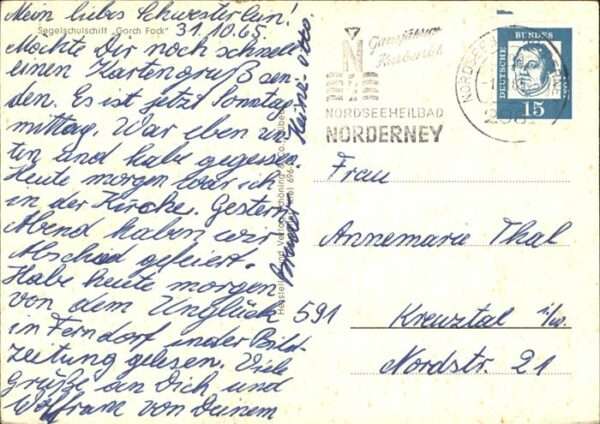 Mein liebes Schwesterlein!
Segelschulschiff „Gorch Fock"
31.10.65.
Möchte Dir noch schnell
einen Kartengruß sen-
den. Es ist jetzt Sonntag-
mittag. War eben un-
ten und habe gegessen.
Heute morgen war ich
in der Kirche. Gestern
Abend haben wir
Abschied gefeiert.
Habe heute morgen
von dem Unglück
in Ferndorf in der Bild-
zeitung gelesen. Viele
Grüße an Dich und
Wolfram von Deinem
Bruder Heinz-Otto
Ganzjährige
Nordseeheilbad
NORDSEEHEILBAD
NORDERNEY
DEUTSCHE BUNDES
15
Frau
Annemarie Thal
591 Kreuztal i/W.
Nordstr. 21